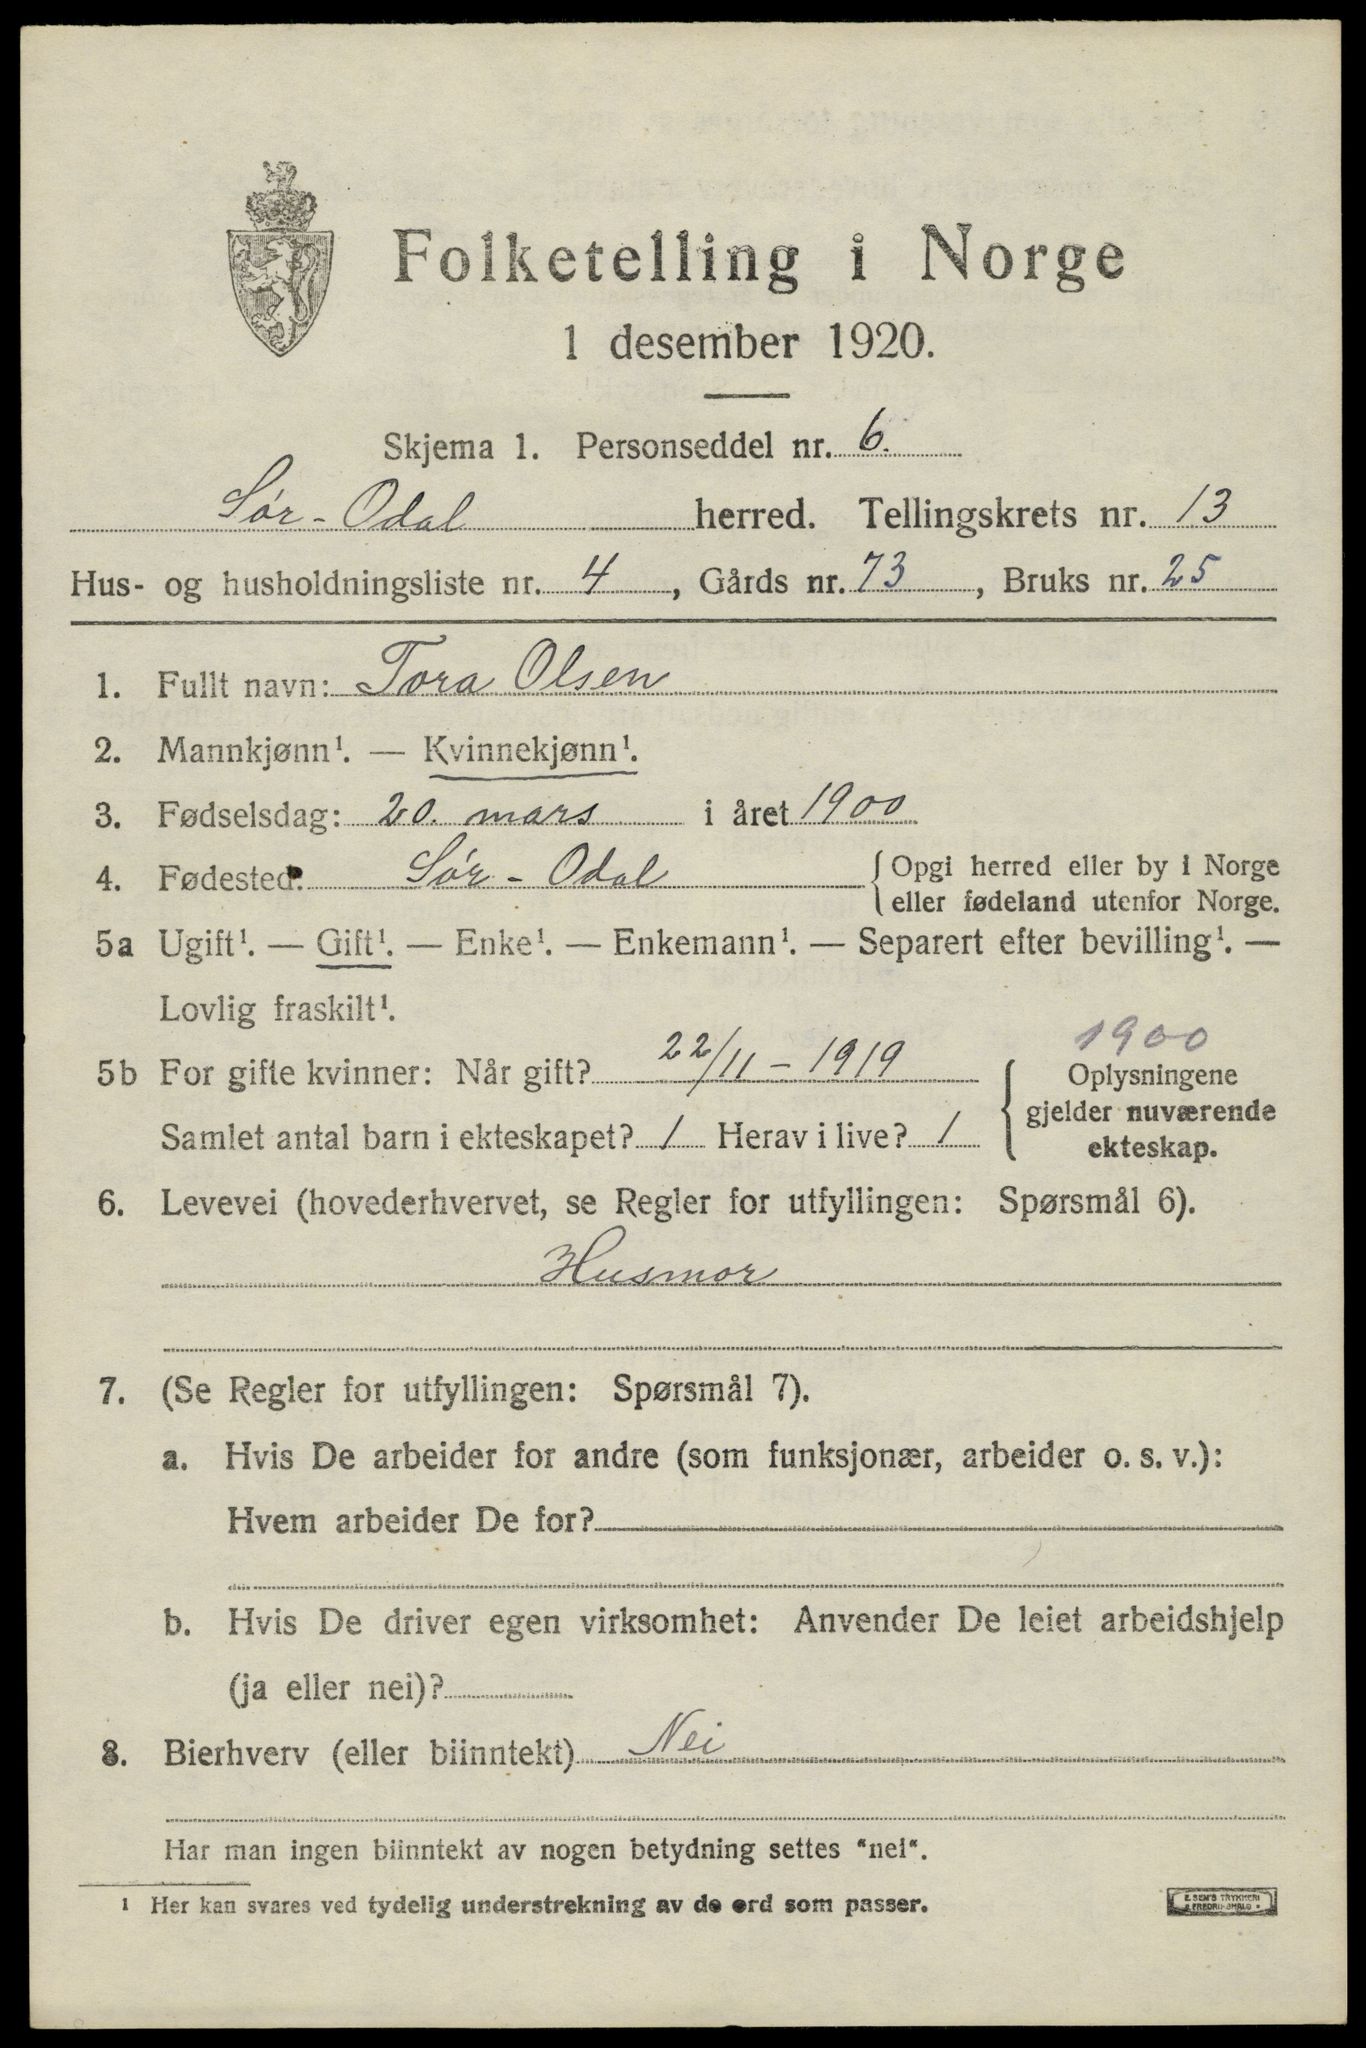 Folketelling i Norge
1 desember 1920.
Skjema 1. Personseddel nr. 6.
Sør-Odal herred. Tellingskrets nr. 13
Hus- og husholdningsliste nr. 4, Gårds nr. 73, Bruks nr. 25
1. Fullt navn: Tora Olsen
2. Mannkjønn¹. — Kvinnekjønn¹.
3. Fødselsdag: 20. mars i året 1900
4. Fødested: Sør-Odal {Opgi herred eller by i Norge
eller fødeland utenfor Norge.
5a Ugift¹. — Gift¹. — Enke¹. — Enkemann¹. — Separert efter bevilling¹. —
Lovlig fraskilt¹.
1900
5b For gifte kvinner: Når gift? 22/11 - 1919 Oplysningene
gjelder nuværende
Samlet antal barn i ekteskapet? 1 Herav i live? 1 ekteskap.
6. Levevei (hovederhvervet, se Regler for utfyllingen: Spørsmål 6).
Husmor
7. (Se Regler for utfyllingen: Spørsmål 7).
a. Hvis De arbeider for andre (som funksjonær, arbeider o. s. v.):
Hvem arbeider De for?
b. Hvis De driver egen virksomhet: Anvender De leiet arbeidshjelp
(ja eller nei)?
8. Bierhverv (eller biinntekt) Nei
Har man ingen biinntekt av nogen betydning settes "nei".
¹ Her kan svares ved tydelig understrekning av de ord som passer.
E SEM'S TRYKKERI
FREDRIKSHALD